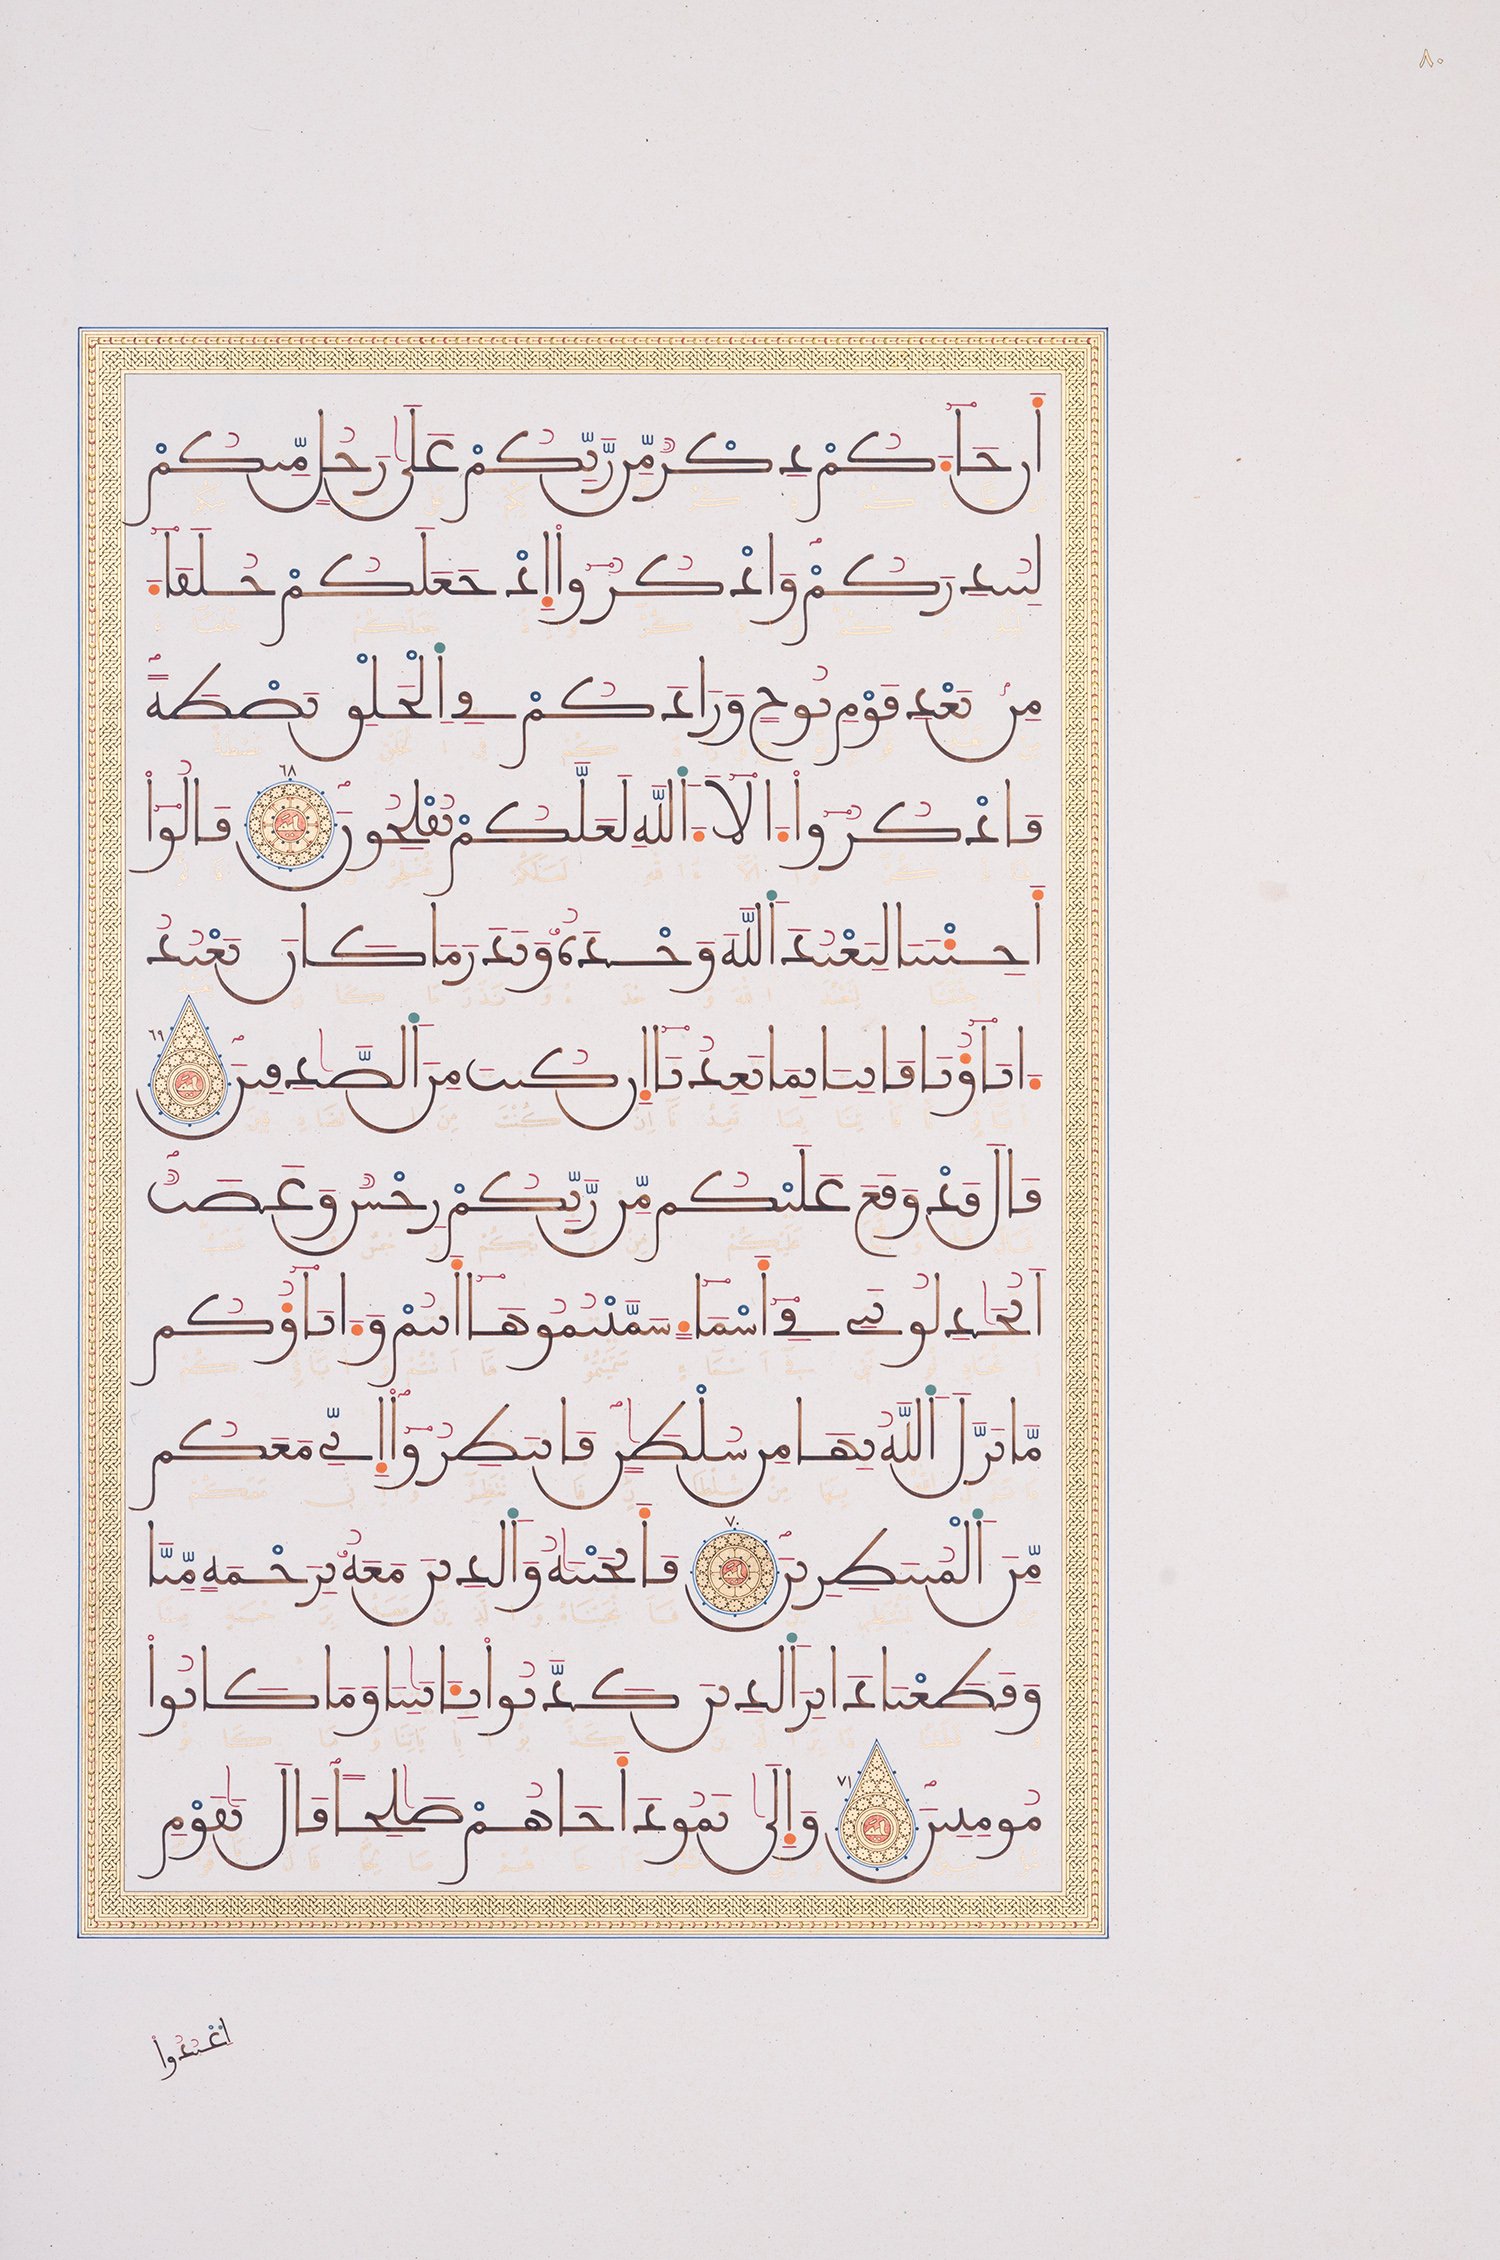 ٨٠
أَن جَآءَكُمْ ذِكْرٌ مِّن رَّبِّكُمْ عَلَىٰ رَجُلٍ مِّنكُمْ
لِيُنذِرَكُمْ وَاذْكُرُوٓا۟ إِذْ جَعَلَكُمْ خُلَفَآءَ
مِنۢ بَعْدِ قَوْمِ نُوحٍ وَزَادَكُمْ فِى ٱلْخَلْقِ بَصْطَةً
فَاذْكُرُوٓا۟ ءَالَآءَ ٱللَّهِ لَعَلَّكُمْ تُفْلِحُونَ ٦٨ قَالُوٓا۟
أَجِئْتَنَا لِنَعْبُدَ ٱللَّهَ وَحْدَهُۥ وَنَذَرَ مَا كَانَ يَعْبُدُ
ءَابَآؤُنَا فَاتِنَا بِمَا تَعِدُنَآ إِن كُنتَ مِنَ ٱلصَّٰدِقِينَ ٦٩
قَالَ قَدْ وَقَعَ عَلَيْكُم مِّن رَّبِّكُمْ رِجْسٌ وَغَضَبٌ
أَتُجَٰدِلُونَنِى فِىٓ أَسْمَآءٍ سَمَّيْتُمُوهَآ أَنتُمْ وَءَابَآؤُكُم
مَّا نَزَّلَ ٱللَّهُ بِهَا مِن سُلْطَٰنٍ فَانتَظِرُوٓا۟ إِنِّى مَعَكُم
مِّنَ ٱلْمُنتَظِرِينَ ٧٠ فَأَنجَيْنَٰهُ وَٱلَّذِينَ مَعَهُۥ بِرَحْمَةٍ مِّنَّا
وَقَطَعْنَا دَابِرَ ٱلَّذِينَ كَذَّبُوا۟ بِـَٔايَٰتِنَا وَمَا كَانُوا۟
مُومِنِينَ ٧١ وَإِلَىٰ ثَمُودَ أَخَاهُمْ صَٰلِحًا قَالَ يَٰقَوْمِ
اعْبُدُوا۟